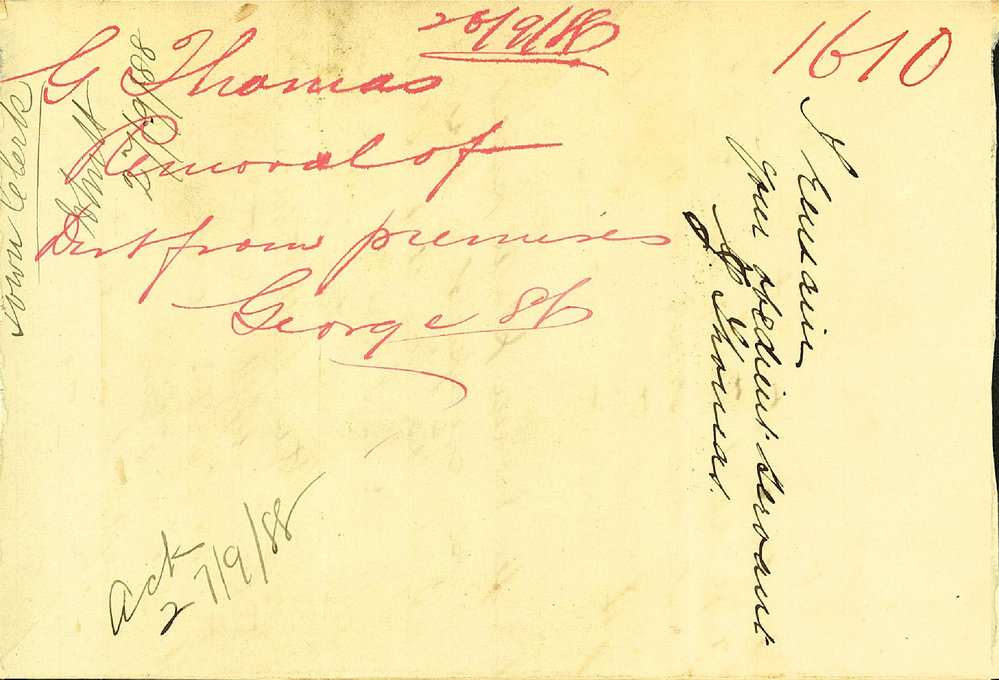 26/9/88
1610
G Thomas
Removal of
Dirt from premises
George St
Town Clerk
27/9/88
I remain
Your obedient servant
G. Thomas.
Ack
27/9/88